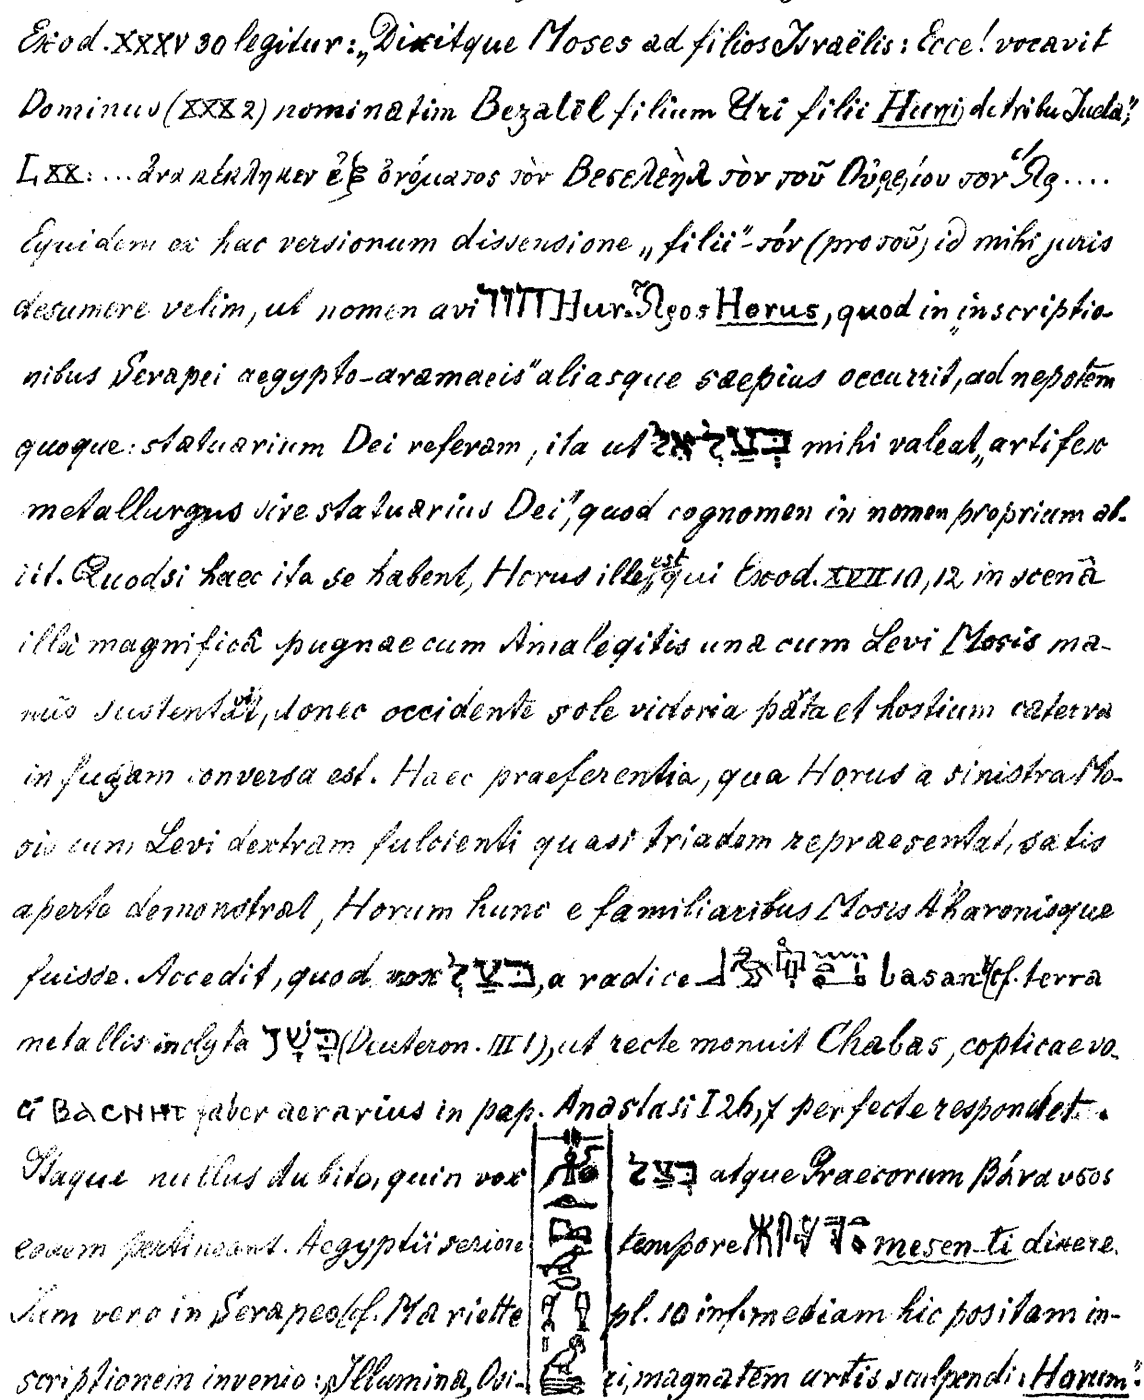 Exod. XXXV 30 legitur: „Dixitque Moses ad filios Israëlis: Ecce! vocavit
Dominus (XXX 2) nominatim Bezalêl filium Uri filii Huri, de tribu Juda",
LXX: ... ἀνακέκληκεν ἐξ ὀνόματος τὸν Βεσελεὴλ τὸν τοῦ Οὐρείου τὸν Ὣρ ....
Equidem ex hac versionum dissensione „filii" - τόν (pro τοῦ) id mihi juris
desumere velim, ut nomen avi חור Hur. Ὧρος Horus, quod in „inscriptio-
nibus Serapei aegypto-aramaeis" aliasque saepius occurrit, ad nepotem
quoque: statuarium Dei referam, ita ut בְּצַלְאֵל mihi valeat „artifex
metallurgus sive statuarius Dei", quod cognomen in nomen proprium ab-
iit. Quodsi haec ita se habent, Horus ille est, qui Exod. XVII 10, 12 in scenâ
illâ magnificâ pugnae cum Amaleqitis una cum Levi Mosis ma-
nûs sustentavit, donec occidente sole victoria parta et hostium caterva
in fugam conversa est. Haec praeferentia, qua Horus a sinistra Mo-
sis cum Levi dextram fulcienti quasi triadem repraesentat, satis
aperte demonstrat, Horum hunc e familiaribus Mosis Aharonisque
fuisse. Accedit, quod vox בְּצַל, a radice basan (cf. terra
metallis inclyta בָּשָׁן (Deuteron. III 1), ut recte monuit Chabas, copticae vo-
ci ⲂⲀⲤⲚⲎⲦ faber aerarius in pap. Anastasi I 26,7 perfecte respondet.
Itaque nullus dubito, quin vox בְּצַל atque Graecorum βάναυσος
eodem pertineant. Aegyptii seriore tempore mesen-ti dixere.
Jam vero in Serapeo (cf. Mariette pl. 10 inf. mediam hic positam in-
scriptionem invenio: „Illumina, Osi- ri, magnatem artis sculpendi: Horum"